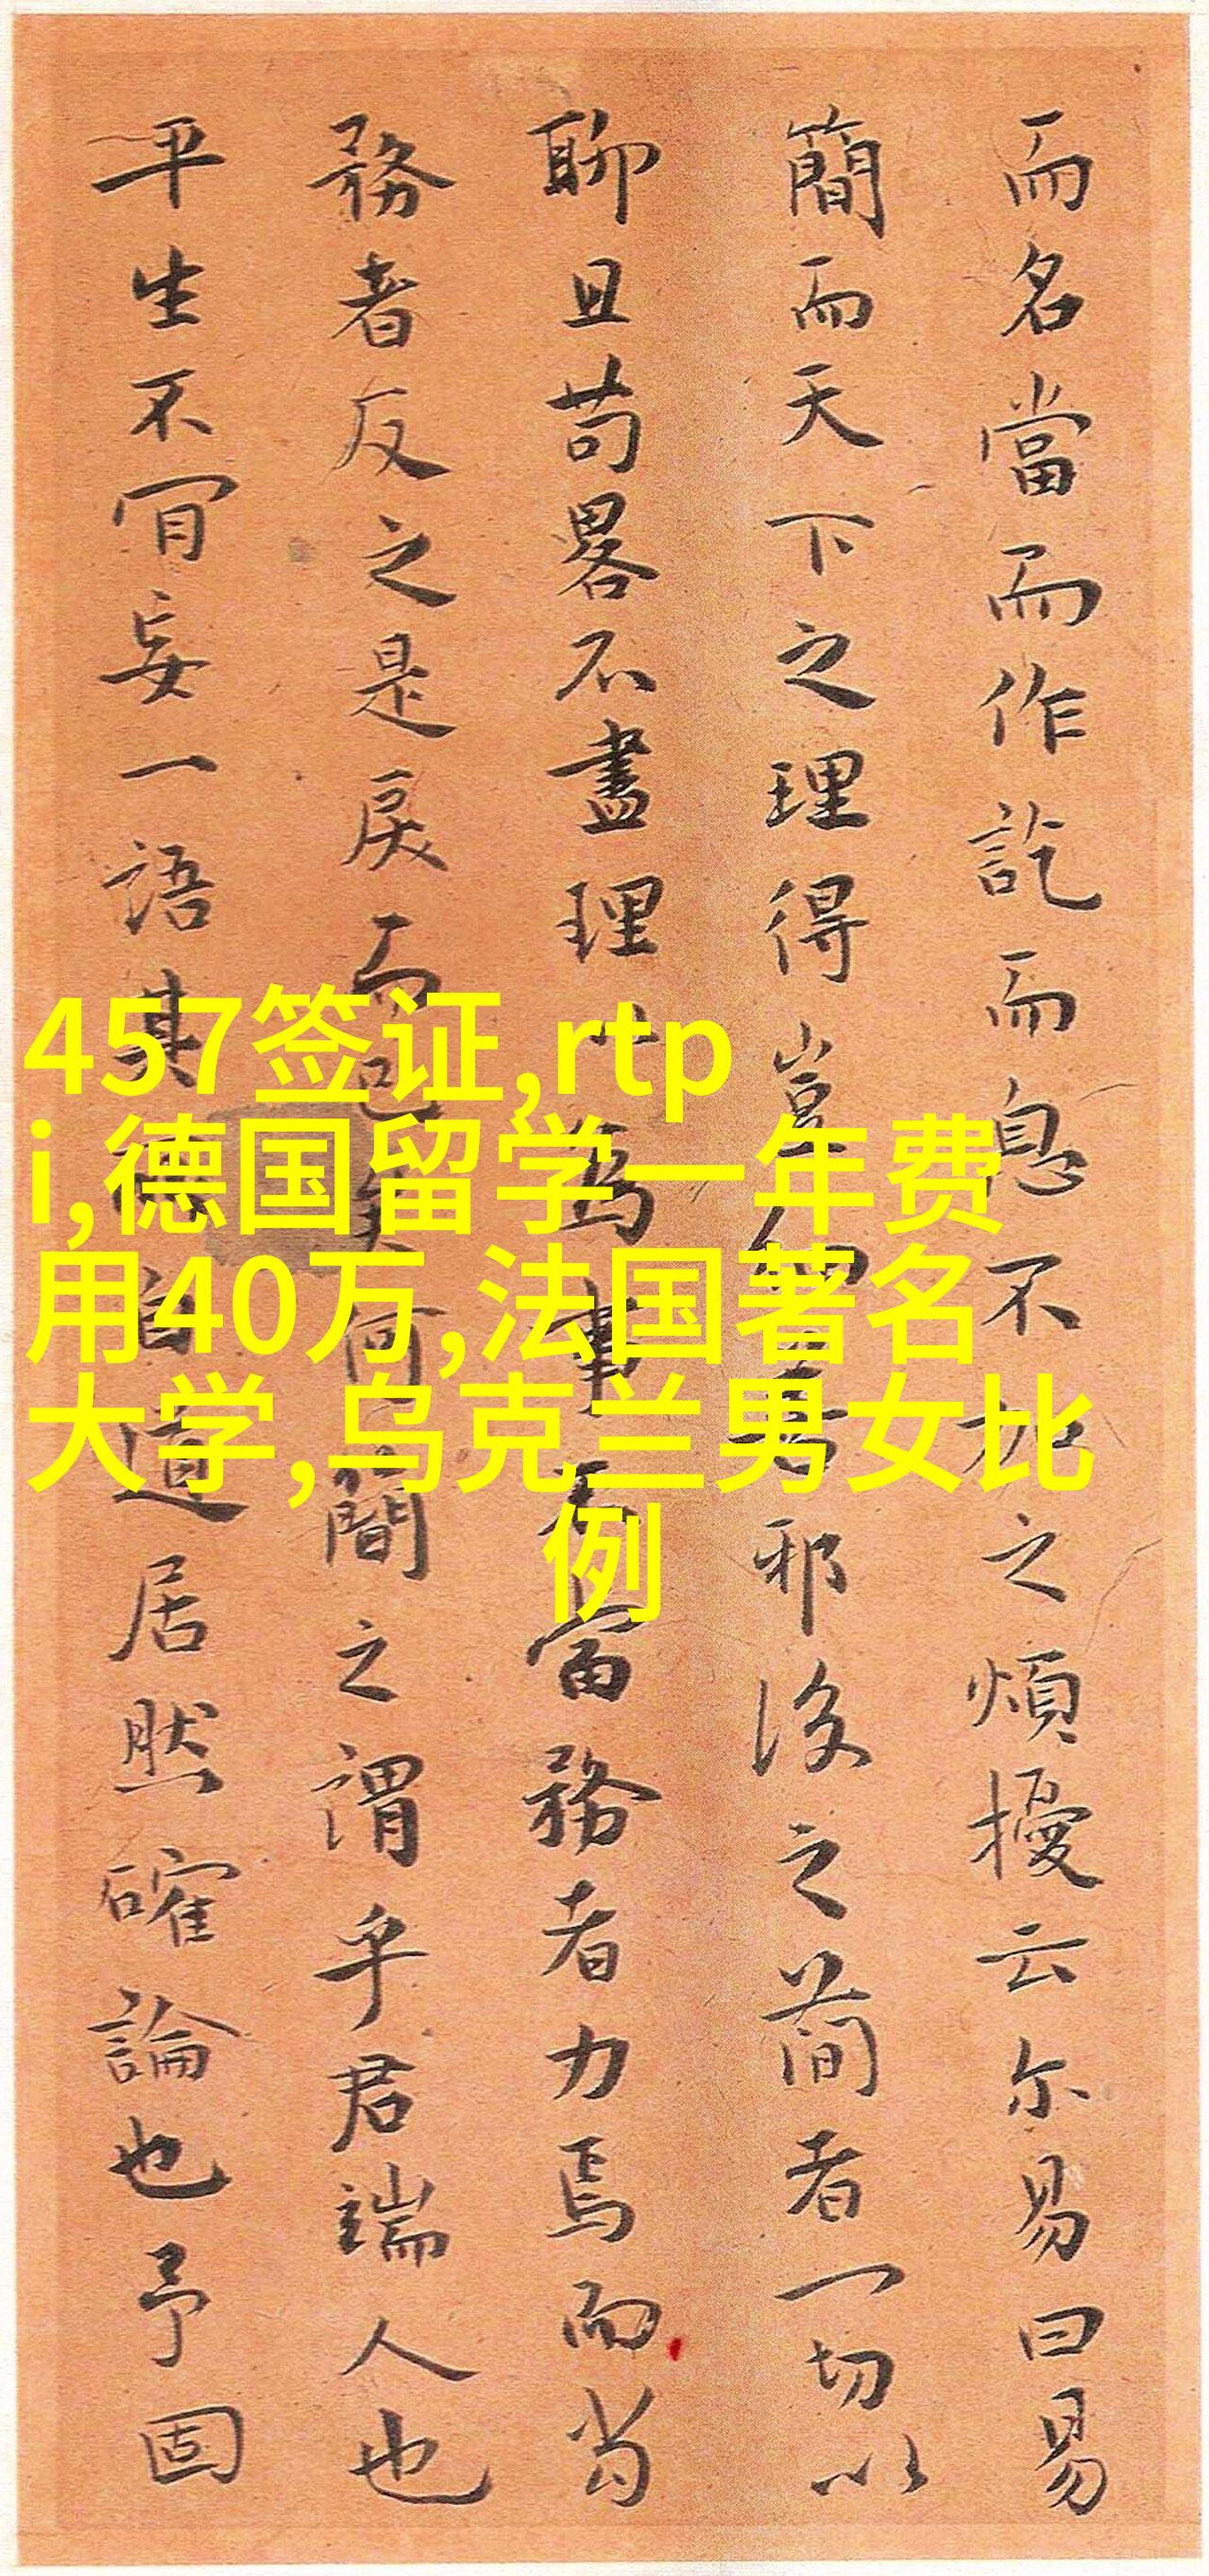 而名當而作訖而息不加之煩擾云尔易曰易
簡而天下之理得豈細邪後之簡者一切以
聊且苟畧不盡理以為事當務者力焉而當
務者反之是戾而已矣何簡之謂乎君端人也
平生不肎妄一語其自道居然確論也予固
457签证,rtp
i,德国留学一年费
用40万,法国著名
大学,乌克兰男女比
例